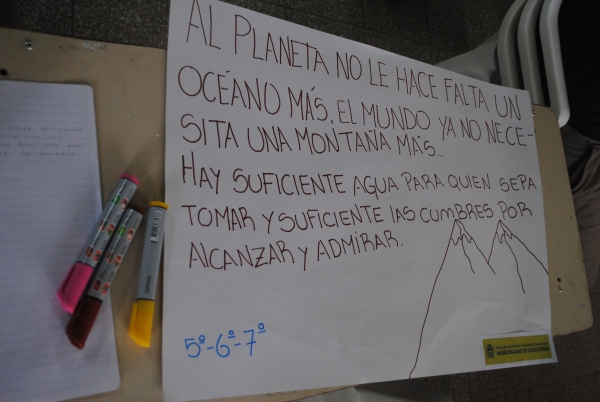 AL PLANETA NO LE HACE FALTA UN
OCÉANO MÁS, EL MUNDO YA NO NECE-
SITA UNA MONTAÑA MÁS..
HAY SUFICIENTE AGUA PARA QUIEN SEPA
TOMAR Y SUFICIENTE LAS CUMBRES POR
ALCANZAR Y ADMIRAR.
5º-6º-7º